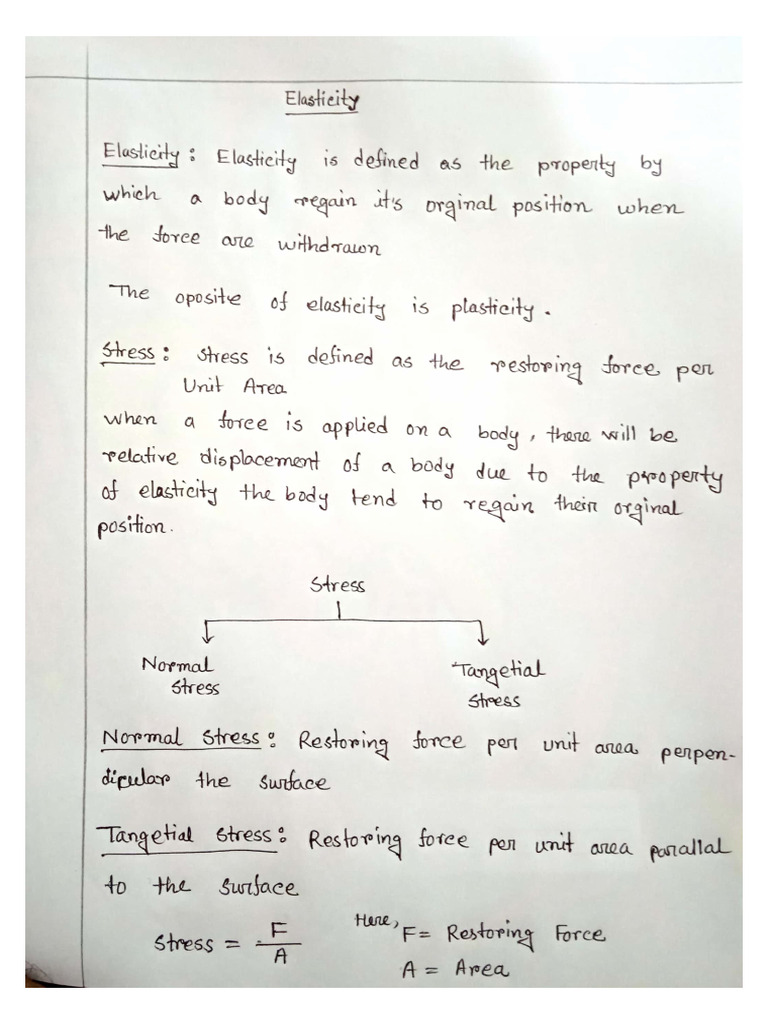 Elasticity
Elasticity : Elasticity is defined as the property by
which a body regain it's orginal position when
the force are withdrawn
The oposite of elasticity is plasticity.
Stress : Stress is defined as the restoring force per
Unit Area
when a force is applied on a body, there will be
relative displacement of a body due to the property
of elasticity the body tend to regain their orginal
position.
Stress
Normal Tangetial
Stress Stress
Normal Stress : Restoring force per unit area perpen-
dicular the surface
Tangetial Stress : Restoring force per unit area parallal
to the surface
Stress = F/A Here, F = Restoring Force
A = Area